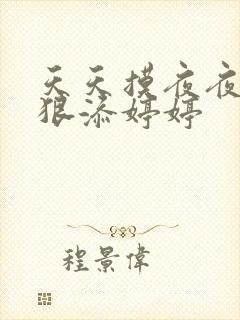 天天摸夜夜
狠添婷婷
程景偉